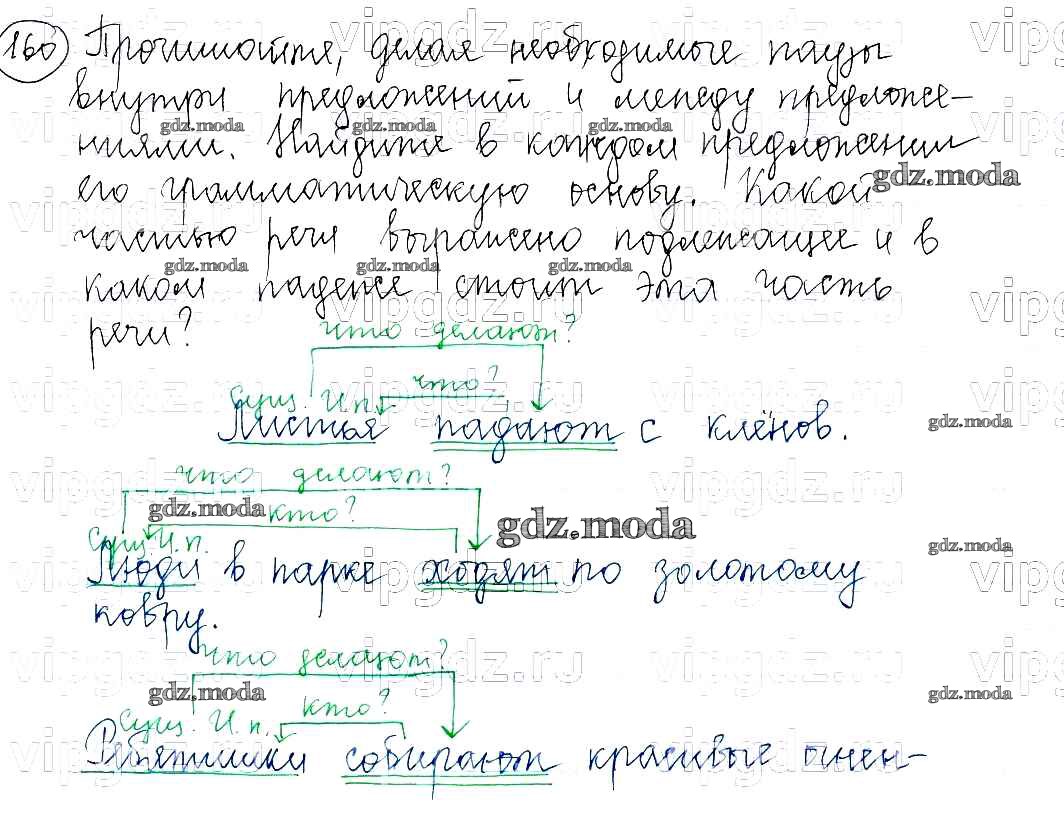 160 Прочитайте, делая необходимые паузы
внутри предложений и между предложе-
ниями. Найдите в каждом предложении
его грамматическую основу. Какой
частью речи выражено подлежащее и в
каком падеже стоит эта часть
речи?
что делают?
что?
Сущ. И.п.
Листья падают с клёнов.
что делают?
кто?
Сущ. И.п.
Люди в парке ходят по золотому
ковру.
что делают?
кто?
Сущ. И.п.
Ребятишки собирают красивые огнен-
gdz.moda
vipgdz.ru